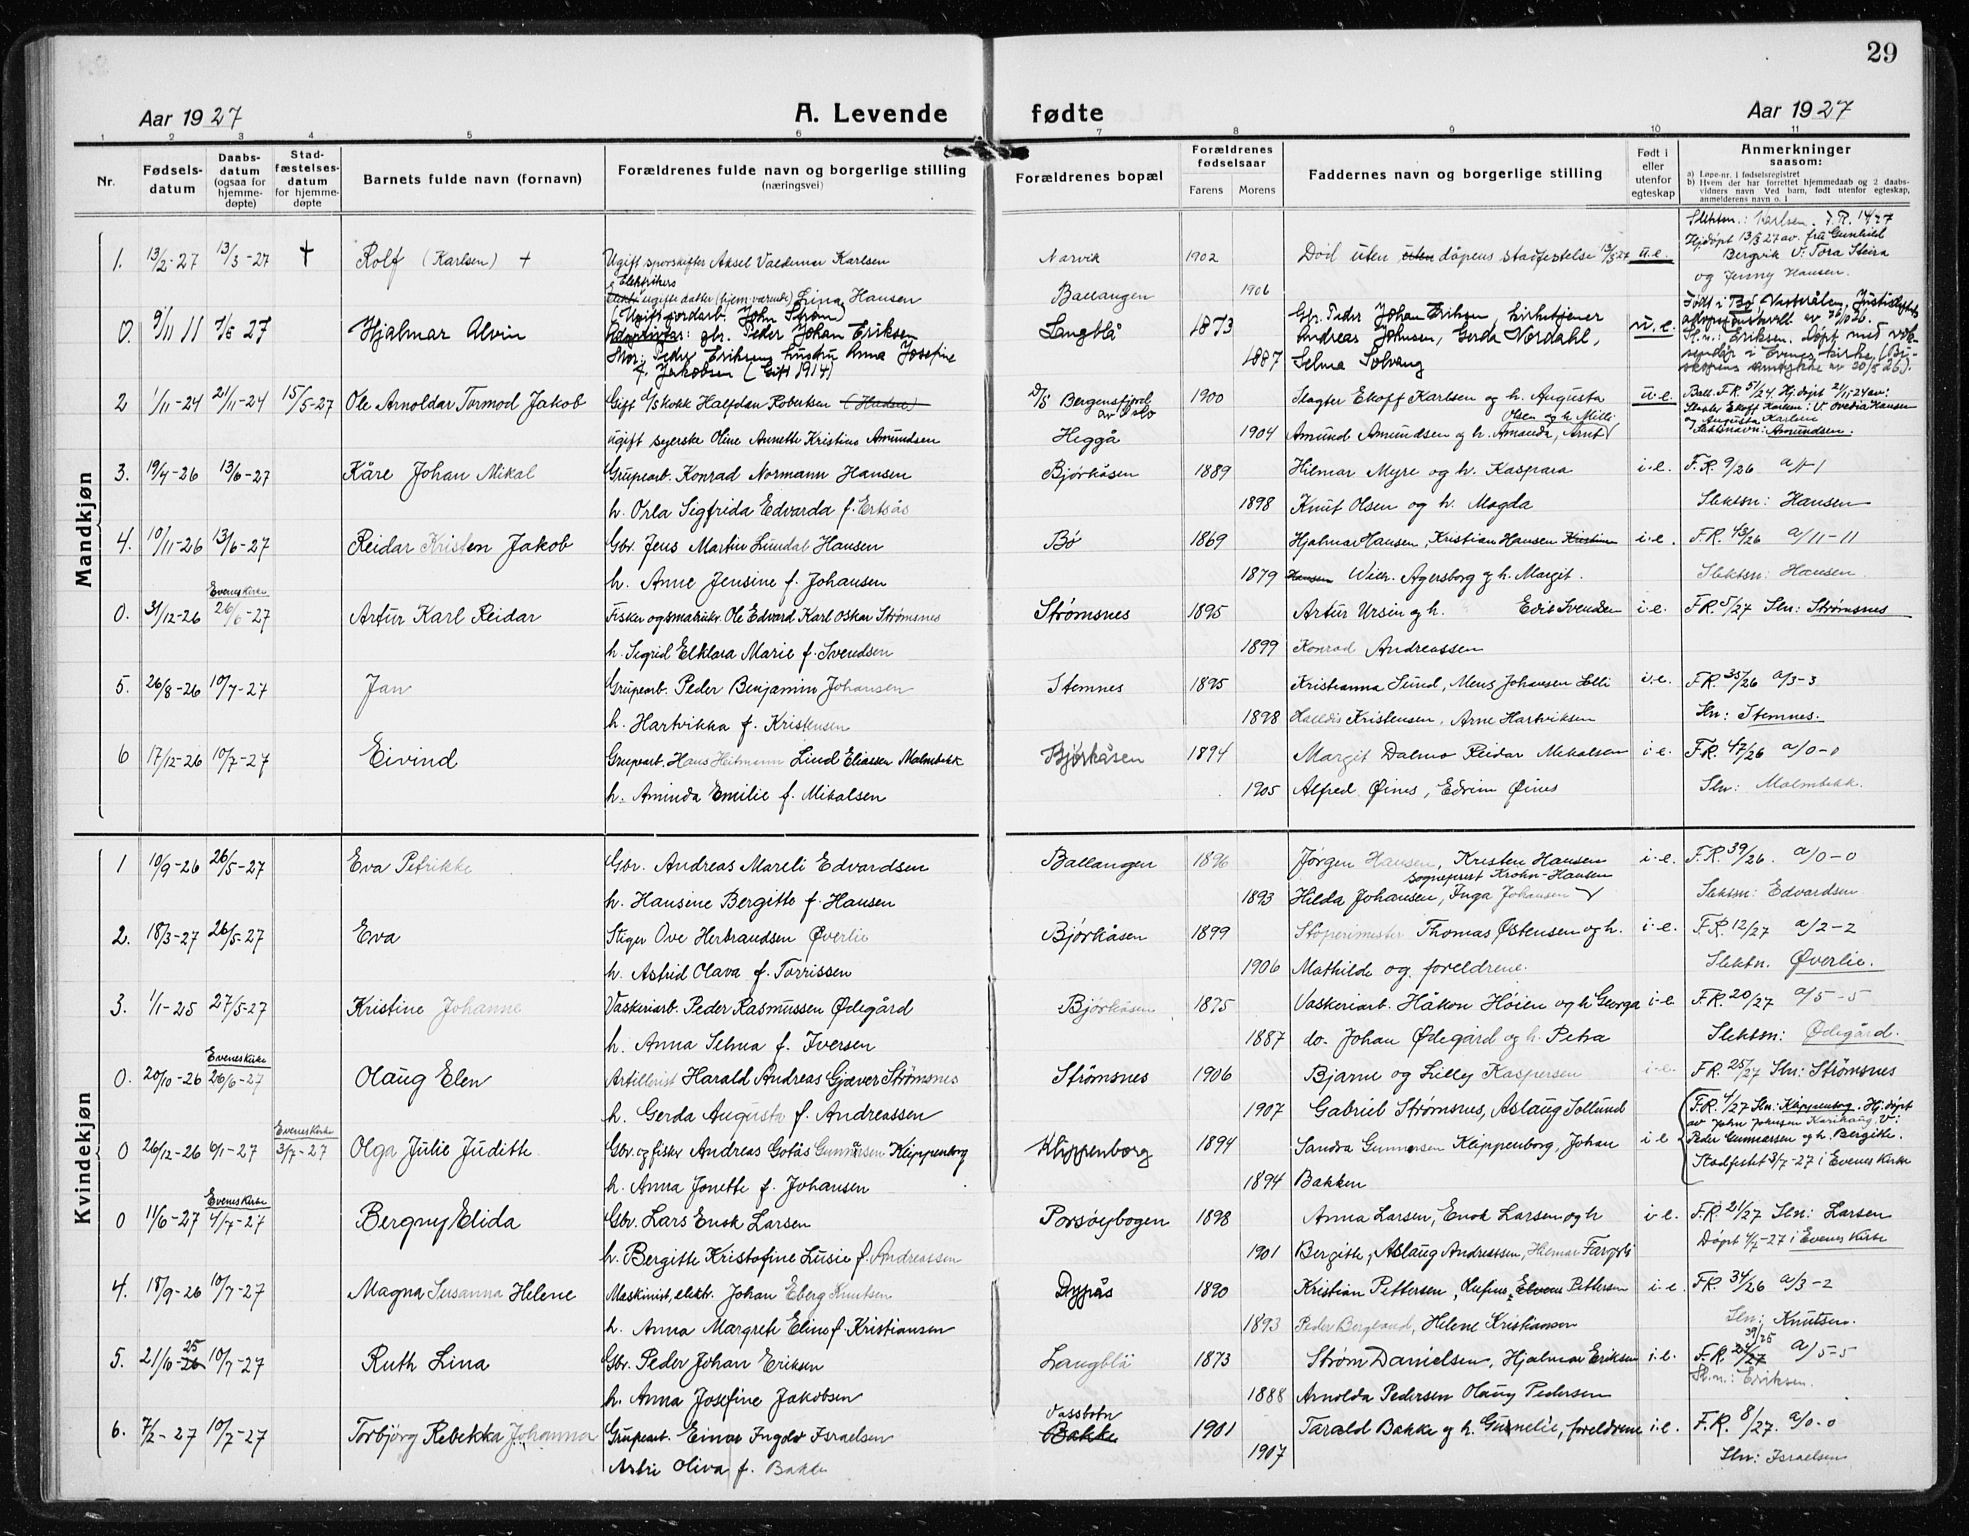 29
Aar 1927 A. Levende fødte Aar 1927
1 2 3 4 5 6 7 8 9 10 11
Nr. Fødselsdatum Daabsdatum (ogsaa for hjemmedøpte) Stadfæstelsesdatum for hjemmedøpte Barnets fulde navn (fornavn) Forældrenes fulde navn og borgerlige stilling (næringsvei) Forældrenes bopæl Forældrenes fødselsaar Farens Morens Faddernes navn og borgerlige stilling Født i eller utenfor egteskap Anmerkninger saasom: a) Løpe-nr. i fødselsregistret b) Hvem der har forrettet hjemmedaab og 2 daabsvidners navn Ved barn, født utenfor egteskap, anmelderens navn o. l
Mandkjøn
Slektsn.: Karlsen. F.R. 14/27
1. 13/2-27 13/3-27 † Rolf (Karlsen) + Ugift sporskifter Aksel Valdemar Karlsen Narvik 1902 Død uten uten dåpens stadfestelse 13/3 27 u.e. Hjdøpt 13/3 27 av. fru Gunhild Bergvik V: Tora Steira
Elektrikers ugifte datter (hjem.værende) Lina Hansen Ballangen 1906 og Jenny Hansen.
0. 9/11 11 7/6 27 Hjalmar Alvin (Ugift jordarb. John Strøm) gbr. Peder Johan Eriksen Langblå 1873 Gbr. Peder Johan Eriksen, kirketjener Andreas Johnsen, Gerda Nordahl, u.e. Født i Bø Vesterålen.
Mor: Peder Eriksens hustru Anna Josefine f. Jakobsen (Gift 1914) 1887 Selma Solvang Sl.n.: Eriksen. Døpt med i Evenes kirke
2 1/11-24 21/11-24 15/5-27 Ole Arnoldar Tormod Jakob Gift Skokk Halfdan Robertsen D/S Bergensfjord av Oslo 1900 Slagter Ekoff Karlsen og h. Augusta u.e. Ball. F.R. 51/24. Hj.døpt 21/11-24 av:
Ugift syerske Oline Annette Kristine Amundsen Heggå 1904 Amund Amundsen og h. Amanda, Arnt Olsen og h. Milli Slektsnavn: Amundsen.
3. 19/4-26 13/6-27 Kåre Johan Mikal Grupearb. Konrad Normann Hansen Bjørkåsen 1889 Hilmar Myre og h. Kaspara i.e. F.R. 9/26 a/1-1
h. Orla Sigfrida Edvarda f. Ertsås 1898 Knut Olsen og h. Magda Slektsn: Hansen
4. 10/11-26 13/6-27 Reidar Kristen Jakob Gbr. Jens Martin Lundal Hansen Bø 1869 Hjalmar Hansen, Kristian Hansen Kristine i.e. F.R. 43/26 a/11-11
h. Anne Jensine f. Johansen 1879 Hansen Agersborg og h. Margit. Slektsn: Hansen
Evenes Kirke
0. 31/12-26 26/6-27 Artur Karl Reidar Fisker og småbruker Ole Edvard Karl Oskar Strømsnes Strømsnes 1895 Artur Ursin og h. Edil Svendsen i.e. F.R. 5/27 Sln: Strømsnes
h. Sigrid Elklara Marie f. Svendsen 1899 Konrad Andreassen
5. 26/8-26 10/7-27 Jan Grupearb. Peder Benjamin Johansen Stemnes 1895 Kristianna Lund, Mens Johansen Lilli i.e. F.R. 35/26 a/3-3
h. Hartvikka f. Kristensen 1898 Halldis Kristensen, Arne Hartviksen Sln: Stemnes.
6 17/12-26 10/7-27 Eivind Grupearb. Hans Heitmann Lind Eliassen Malmbekk Bjørkåsen 1894 Margit Dalmo Reidar Mikalsen i.e. F.R. 47/26 a/0-0
h. Aminda Emilie f. Mikalsen 1905 Alfred Øines, Edvin Øines Sln: Malmbekk.
Kvindekjøn
1 10/9-26 26/5-27 Eva Petrikke Gbr. Andreas Mareli Edvardsen Ballangen 1896 Jørgen Hansen, Kristen Hansen i.e. F.R. 39/26. a/0-0
h. Hansine Bergitte f. Hansen 1893 Hilda Johansen, Inga Johansen sogneprest Krohn-Hansen Slektsn: Edvardsen
2. 18/3-27 26/5-27 Eva Stiger Ove Herbrandsen Øverlie Bjørkåsen 1899 Støperimester Thomas Østensen og h. i.e. F.R. 12/27 a/2-2
h. Astrid Olava f. Torrissen 1906 Mathilde og foreldrene. Slektn. Øverlie.
3. 1/1-25 27/5-27 Kristine Johanne Vaskeriarb. Peder Rasmussen Ødegård Bjørkåsen 1875 Vaskeriarb. Håkon Hoien og h Georga i.e. F.R. 20/27 a/5-5
h. Anna Selma f. Iversen 1887 do. Johan Ødegård og h. Petra Slektsn: Ødegård.
Evenes Kirke
0. 20/10-26 26/6-27 Olaug Elen Artillerist Harald Andreas Gjæver Strømsnes Strømsnes 1906 Bjarne og Lilly Kaspersen i.e. F.R. 25/27 Sln: Strømsnes
h. Gerda Augusta f. Andreassen 1907 Gabriel Strømsnes, Aslaug Sollund F.R. 4/27 Sln: Klippenborg. Hj.døpt av John Johnsen Karihaug V:
Evenes Kirke
0 26/12-26 6/1-27 3/7-27 Olga Julie Judith Gbr. og fisker Andreas Gotås Gunnarsen Klippenborg Klippenborg 1894 Sandra Gunnarsen Klippenborg, Johan i.e Peder Gunnarsen og h. Bergitte.
h. Anna Jonette f. Johansen 1894 Bakken Stadfestet 3/7-27 i Evenes Kirke
Evenes Kirke
0 11/6-27 4/7-27 Bergny Elida Gbr. Lars Enok Larsen Porsøybogen 1898 Anna Larsen, Enok Larsen og h i.e. F.R. 21/27 Sln: Larsen
h. Bergitte Kristofine Lusie f. Andreassen 1901 Bergitte, Aslaug Andreassen, Hilmar Døpt 4/7-27 i Evenes Kirke
4. 18/9-26 10/7-27 Magna Susanna Helene Maskinist, elektr. Johan Eberg Knutsen Dypås 1890 Kristian Pettersen, Rufus Pettersen i.e. F.R. 34/26 a/3-2
h. Anna Margreth Eline f. Kristiansen 1893 Peder Bergland, Helene Kristiansen Sln: Knutsen.
5. 21/6-26 25 10/7-27 Ruth Lina Gbr. Peder Johan Eriksen Langblå 1873 Strøm Danielsen, Hjalmar Eriksen i.e. F.R. 24/27 39/25 a/5-5
h. Anna Josefine Jakobsen 1888 Arnolda Pedersen Olaug Pedersen Sl.n.: Eriksen.
6. 7/2-27 10/7-27 Torbjørg Rebekka Johanna Grupearb. Einar Ingolv Israelsen Vassbotn Bakke 1901 Tarald Bakke og h. Gurnelie, foreldrene i.e. F.R. 8/27. a/0-0
Astri Oliva f. Bakke 1907 Sln: Israelsen